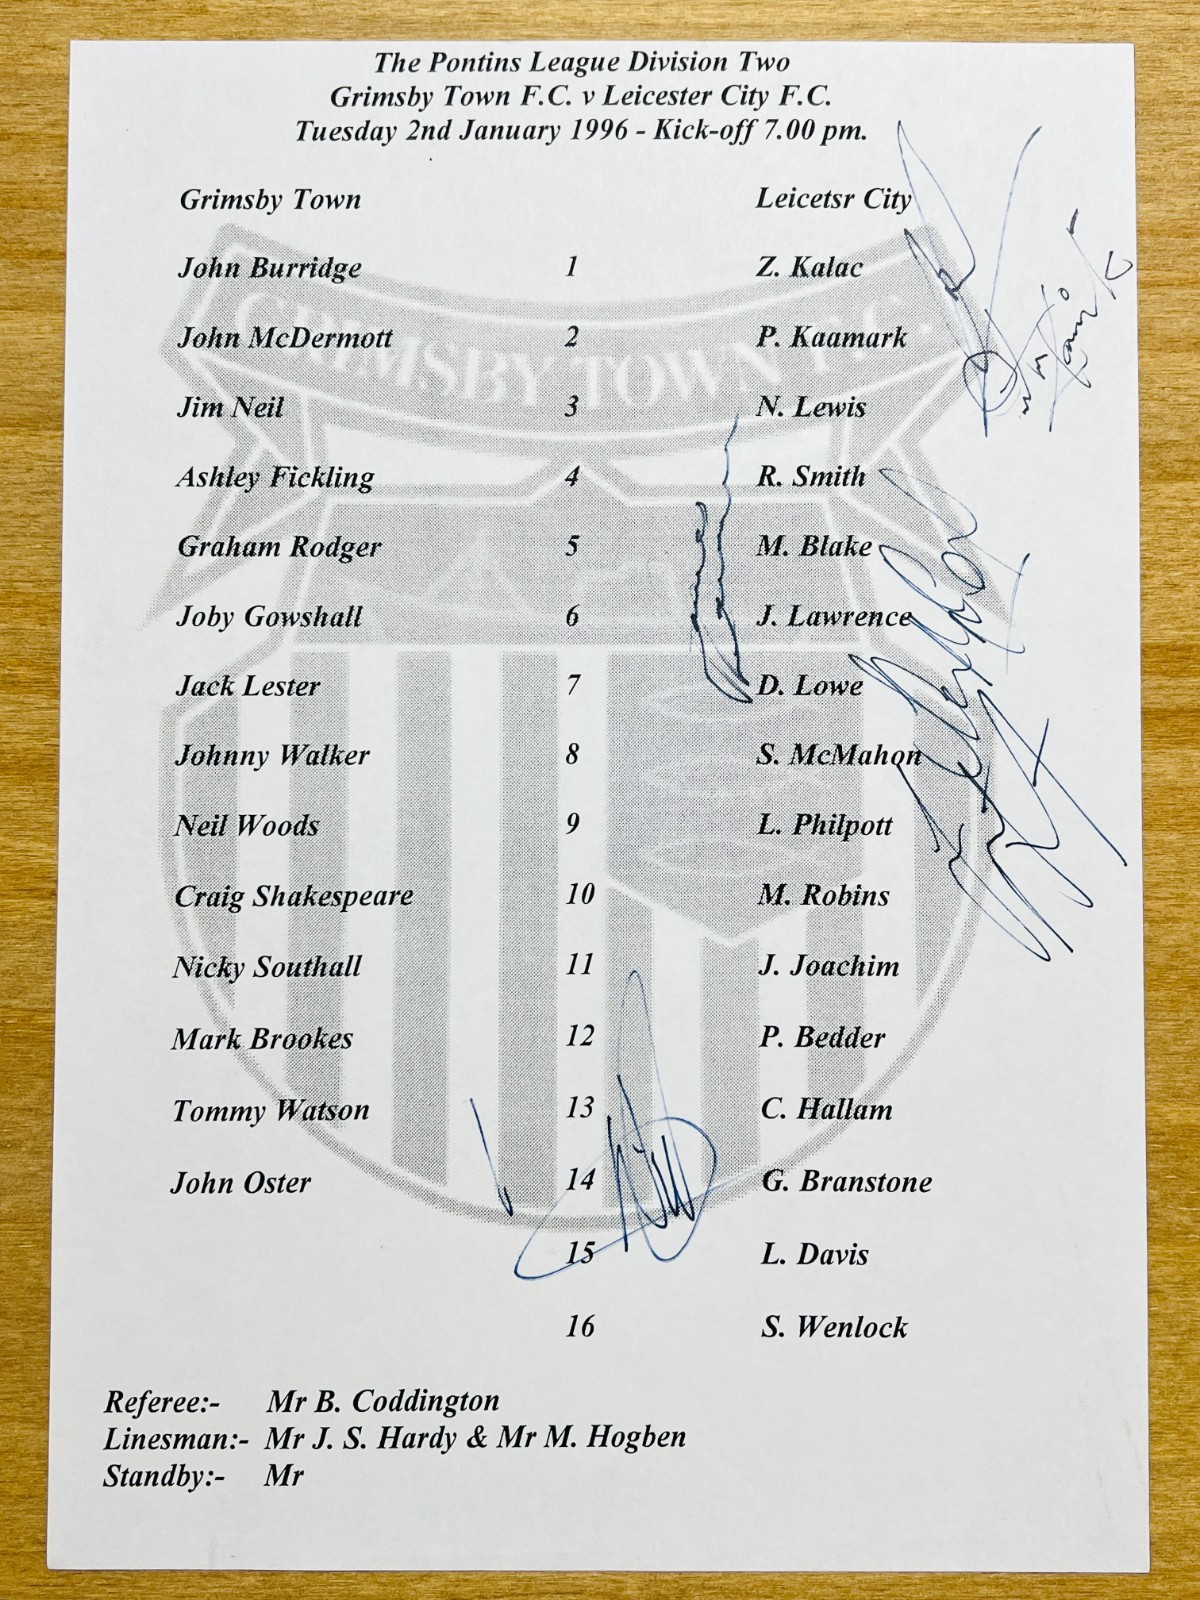 The Pontins League Division Two
Grimsby Town F.C. v Leicester City F.C.
Tuesday 2nd January 1996 - Kick-off 7.00 pm.
Grimsby Town Leicetsr City
John Burridge 1 Z. Kalac
John McDermott 2 P. Kaamark
Jim Neil 3 N. Lewis
Ashley Fickling 4 R. Smith
Graham Rodger 5 M. Blake
Joby Gowshall 6 J. Lawrence
Jack Lester 7 D. Lowe
Johnny Walker 8 S. McMahon
Neil Woods 9 L. Philpott
Craig Shakespeare 10 M. Robins
Nicky Southall 11 J. Joachim
Mark Brookes 12 P. Bedder
Tommy Watson 13 C. Hallam
John Oster 14 G. Branstone
15 L. Davis
16 S. Wenlock
Referee:- Mr B. Coddington
Linesman:- Mr J. S. Hardy & Mr M. Hogben
Standby:- Mr
GRIMSBY TOWN F.C.